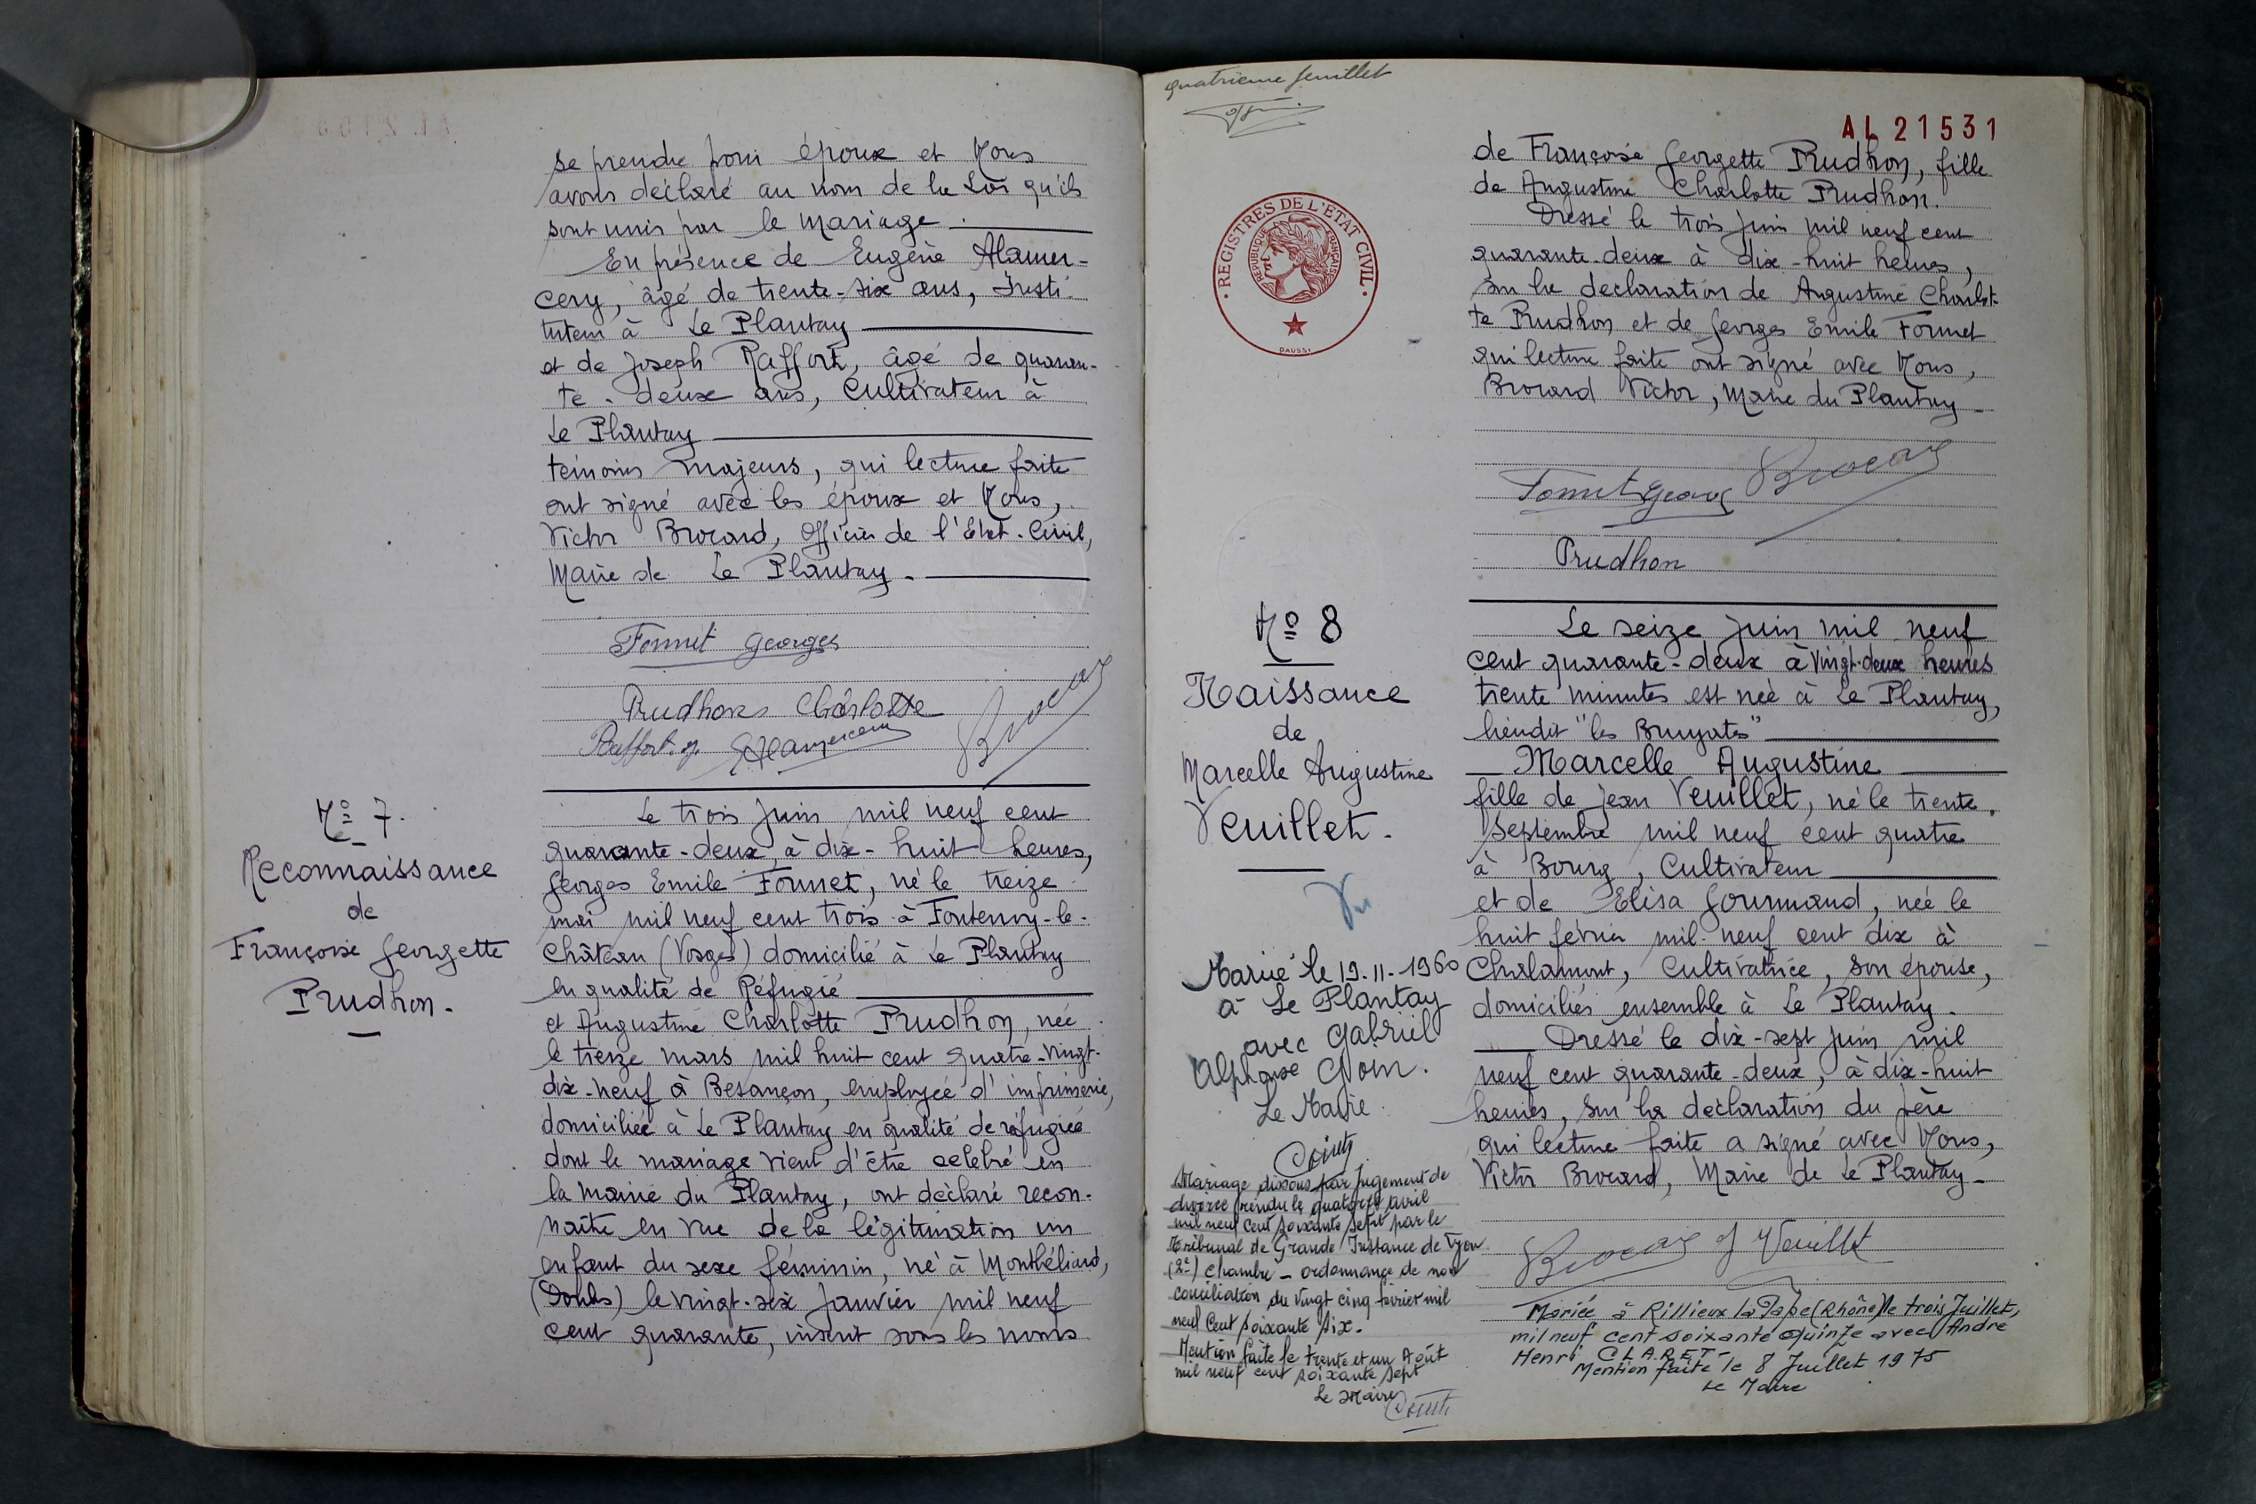 se prendre pour époux et Nous
avons déclaré au nom de la Loi qu'ils
sont unis par le mariage.
En présence de Eugène Alamer-
cery, âgé de trente-six ans, Insti-
tuteur à Le Plantay
et de Joseph Raffort, âgé de quaran-
te-deux ans, Cultivateur à
Le Plantay
témoins majeurs, qui lecture faite
ont signé avec les époux et Nous,
Victor Brocard, Officier de l'Etat-Civil,
Maire de Le Plantay.
Fonnet Georges
Prudhon Charlotte
Raffort J. EAlamercery Brocard
N° 7.
Reconnaissance
de
Françoise Georgette
Prudhon.
Le trois Juin mil neuf cent
quarante-deux, à dix-huit heures,
Georges Emile Fonnet, né le treize
mai mil neuf cent trois à Fontenoy-le-
Château (Vosges) domicilié à Le Plantay
en qualité de Réfugié
et Augustine Charlotte Prudhon, née
le treize mars mil huit cent quatre-vingt-
dix-neuf à Besançon, employée d'imprimerie,
domiciliée à Le Plantay en qualité de réfugiée
dont le mariage vient d'être célébré en
la mairie du Plantay, ont déclaré recon-
naître en vue de la légitimation un
enfant du sexe féminin, né à Montbéliard,
(Doubs) le vingt-six Janvier mil neuf
cent quarante, inscrit sous les noms
quatrième feuillet
AL 21531
REGISTRES DE L'ETAT CIVIL
REPUBLIQUE FRANÇAISE
DAUSSI
de Françoise Georgette Prudhon, fille
de Augustine Charlotte Prudhon.
Dressé le trois Juin mil neuf cent
quarante-deux à dix-huit heures,
sur la déclaration de Augustine Charlot-
te Prudhon et de Georges Emile Fonnet
qui lecture faite ont signé avec Nous,
Brocard Victor, Maire du Plantay
Fonnet Georges Brocard
Prudhon
N° 8
Naissance
de
Marcelle Augustine
Veuillet.
Vu
Le seize Juin mil neuf
cent quarante-deux à vingt-deux heures
trente minutes est née à Le Plantay,
lieudit "les Bruyats"
Marcelle Augustine
fille de Jean Veuillet, né le trente
Septembre mil neuf cent quatre
à Bourg, Cultivateur
et de Elisa Gourmand, née le
huit février mil neuf cent dix à
Chalamont, Cultivatrice, son épouse,
domiciliés ensemble à Le Plantay.
Dressé le dix-sept Juin mil
neuf cent quarante-deux, à dix-huit
heures, sur la déclaration du père
qui lecture faite a signé avec Nous,
Victor Brocard, Maire de Le Plantay
Brocard J Veuillet
Marié le 19-11-1960
à Le Plantay
avec Gabriel
Alphonse Gom.
Le Maire
Comte
Mariage dissous par Jugement de
divorce rendu le quatorze avril
mil neuf cent soixante sept par le
Tribunal de Grande Instance de Lyon
(2e) Chambre - ordonnance de non
conciliation du vingt cinq février mil
neuf cent soixante six.
Mention faite le trente et un Août
mil neuf cent soixante sept
Le Maire
Comte
Mariée à Rillieux la Pape (Rhône) le trois Juillet,
mil neuf cent soixante quinze avec André
Henri CLARET-
Mention faite le 8 Juillet 1975
Le Maire